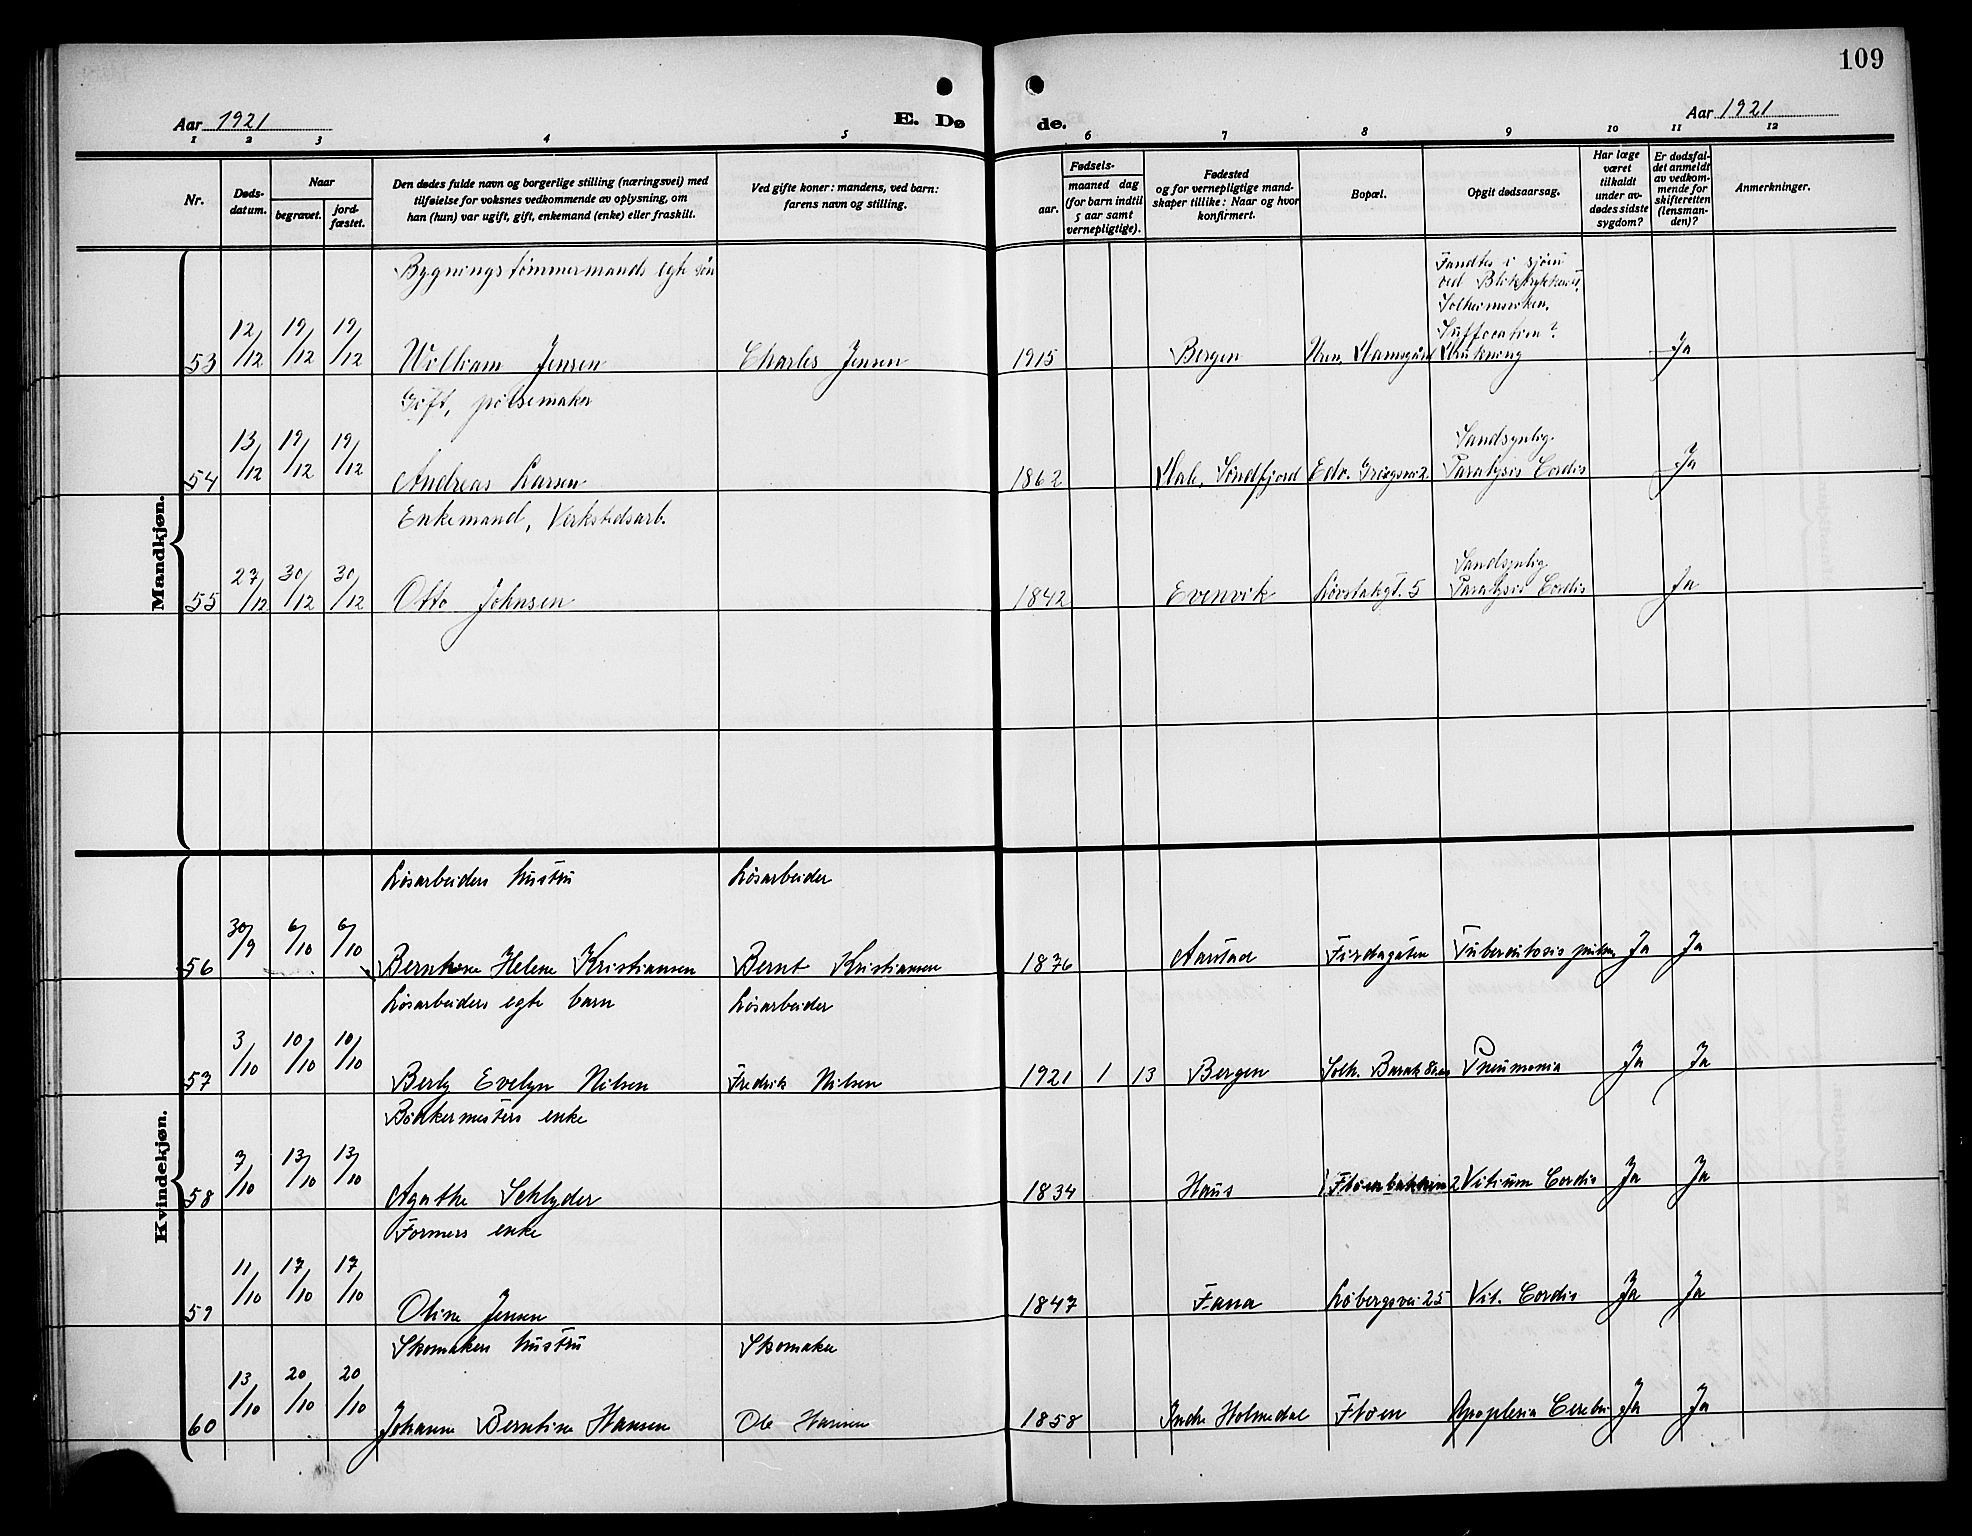 109
Aar 1921
E. Dø
de.
Aar 1921
1 2 3 4 5 6 7 8 9 10 11 12
Nr.
Døds-
datum.
Naar
begravet.
jord-
fæstet.
Den dødes fulde navn og borgerlige stilling (næringsvei) med
tilføielse for voksnes vedkommende av oplysning, om
han (hun) var ugift, gift, enkemand (enke) eller fraskilt.
Ved gifte koner: mandens, ved barn:
farens navn og stilling.
Fødsels-
aar.
maaned dag
(for barn indtil
5 aar samt
vernepligtige).
Fødested
og for vernepligtige mand-
skaper tillike: Naar og hvor
konfirmert.
Bopæl.
Opgit dødsaarsag.
Har læge
været
tilkaldt
under av-
dødes sidste
sygdom?
Er dødsfal-
det anmeldt
av vedkom-
mende for
skifteretten
(lensman-
den)?
Anmerkninger.
Mandkjøn.
Bygningstømmermands egte søn
Fandtes i sjøen
ved
Solheimsviken.
Suffocation?
53 12/12 19/12 19/12 William Jensen Charles Jensen 1915 Bergen Drukning Ja
Gift, pølsemaker
Sandsynlig.
54 13/12 19/12 19/12 Andreas Larsen 1862 Søndfjord Edv. Griegsvei 2 Paralysis Cordis Ja
Enkemand, Verkstedsarb.
Sandsynlig
55 27/12 30/12 30/12 Otto Johnsen 1842 Evenvik Løvstakgt. 5 Paralysis Cordis Ja
Kvindekjøn.
Løsarbeiders hustru Løsarbeider
56 30/9 6/10 6/10 Berntine Helene Kristiansen Bernt Kristiansen 1876 Aarstad Firdagaten Tuberculosis pulm. Ja Ja
Løsarbeiders egte barn Løsarbeider
57 3/10 10/10 10/10 Berly Evelyn Nilsen Fredrik Nilsen 1921 1 13 Bergen Solh. Barak Pneumonia Ja Ja
Bødkermesters enke
58 7/10 13/10 13/10 Agathe Schlyder 1834 Haus Fløenbakken 2 Vitium Cordis Ja Ja
Formers enke
59 11/10 17/10 17/10 Oline Jensen 1847 Fana Løbergsvei 25 Vit. Cordis Ja Ja
Skomakers hustru Skomaker
60 13/10 20/10 20/10 Johanne Berntine Hansen Ole Hansen 1858 Indre Holmedal Fløen Apoplexia Cerebri Ja Ja